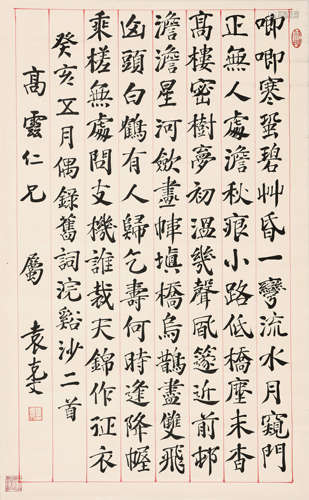 唧唧寒蛩碧艸昏一彎流水月窺門
正無人處澹秋痕小路低橋塵未杳
高樓密樹夢初溫幾聲風篴近前邨
澹澹星河斂畫幃填橋烏鵲盡雙飛
頭白鶴有人歸乞壽何時逢降幄
乘槎無處問支機誰裁天錦作征衣
癸亥五月偶錄舊詞浣谿沙二首
高靈仁兄 屬 袁克文